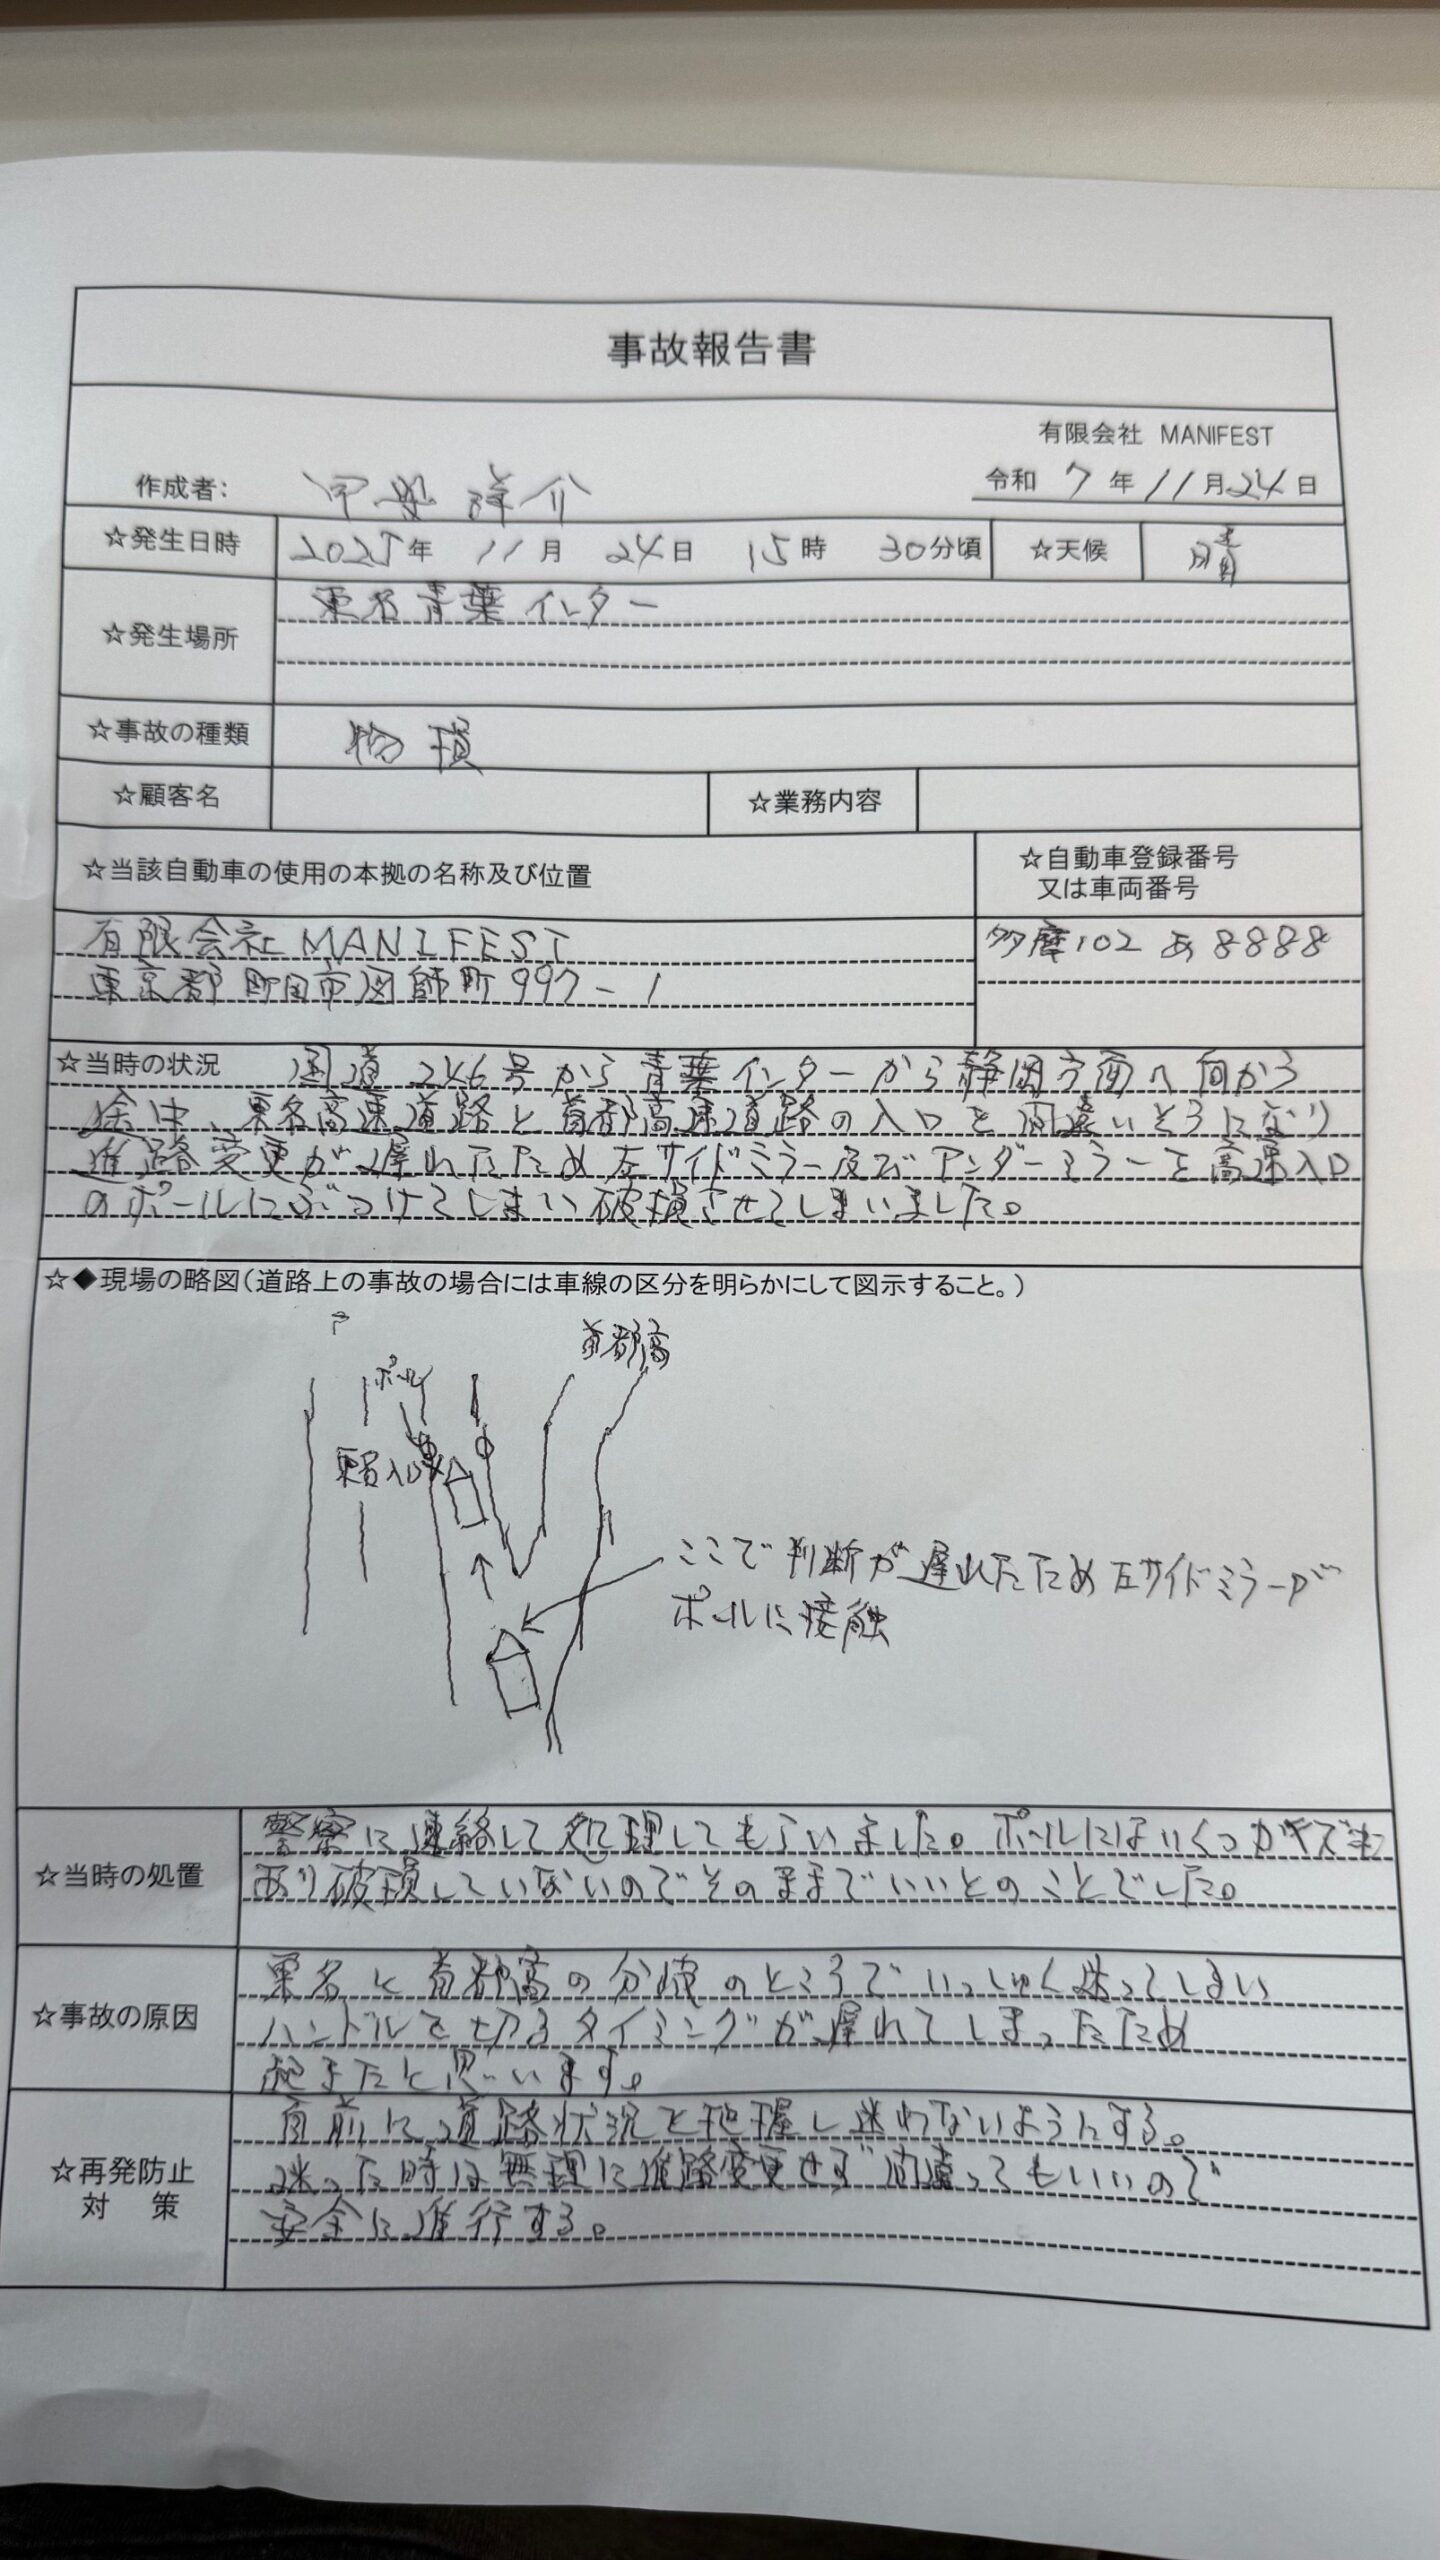 事故報告書
有限会社 MANIFEST
作成者: 甲斐 洋介
令和 7年 11月24日
☆発生日時 2025年 11月 24日 15時 30分頃 ☆天候 晴
☆発生場所 東名青葉インター
☆事故の種類 物損
☆顧客名 ☆業務内容
☆当該自動車の使用の本拠の名称及び位置
☆自動車登録番号
又は車両番号
有限会社MANIFEST
東京都町田市図師町997-1
多摩102 あ8888
☆当時の状況 国道246号から青葉インターから静岡方面へ向かう
途中、東名高速道路と首都高速道路の入口を間違いそうになり
進路変更が遅れたため左サイドミラー及びアンダーミラーを高速入口
のポールにぶつけてしまい破損させてしまいました。
☆◆現場の略図(道路上の事故の場合には車線の区分を明らかにして図示すること。)
首都高
ポール
東名入口
ここで判断が遅れたため左サイドミラーが
ポールに接触
☆当時の処置
警察に連絡して処理してもらいました。ポールにはいくつかキズも
あり破損していないのでそのままでいいとのことでした。
☆事故の原因
東名と首都高の分岐のところでいっしゅん迷ってしまい
ハンドルを切るタイミングが遅れてしまったため
起きたと思います。
☆再発防止
対 策
事前に道路状況を把握し迷わないようにする。
迷った時は無理に進路変更せず間違ってもいいので
安全に進行する。